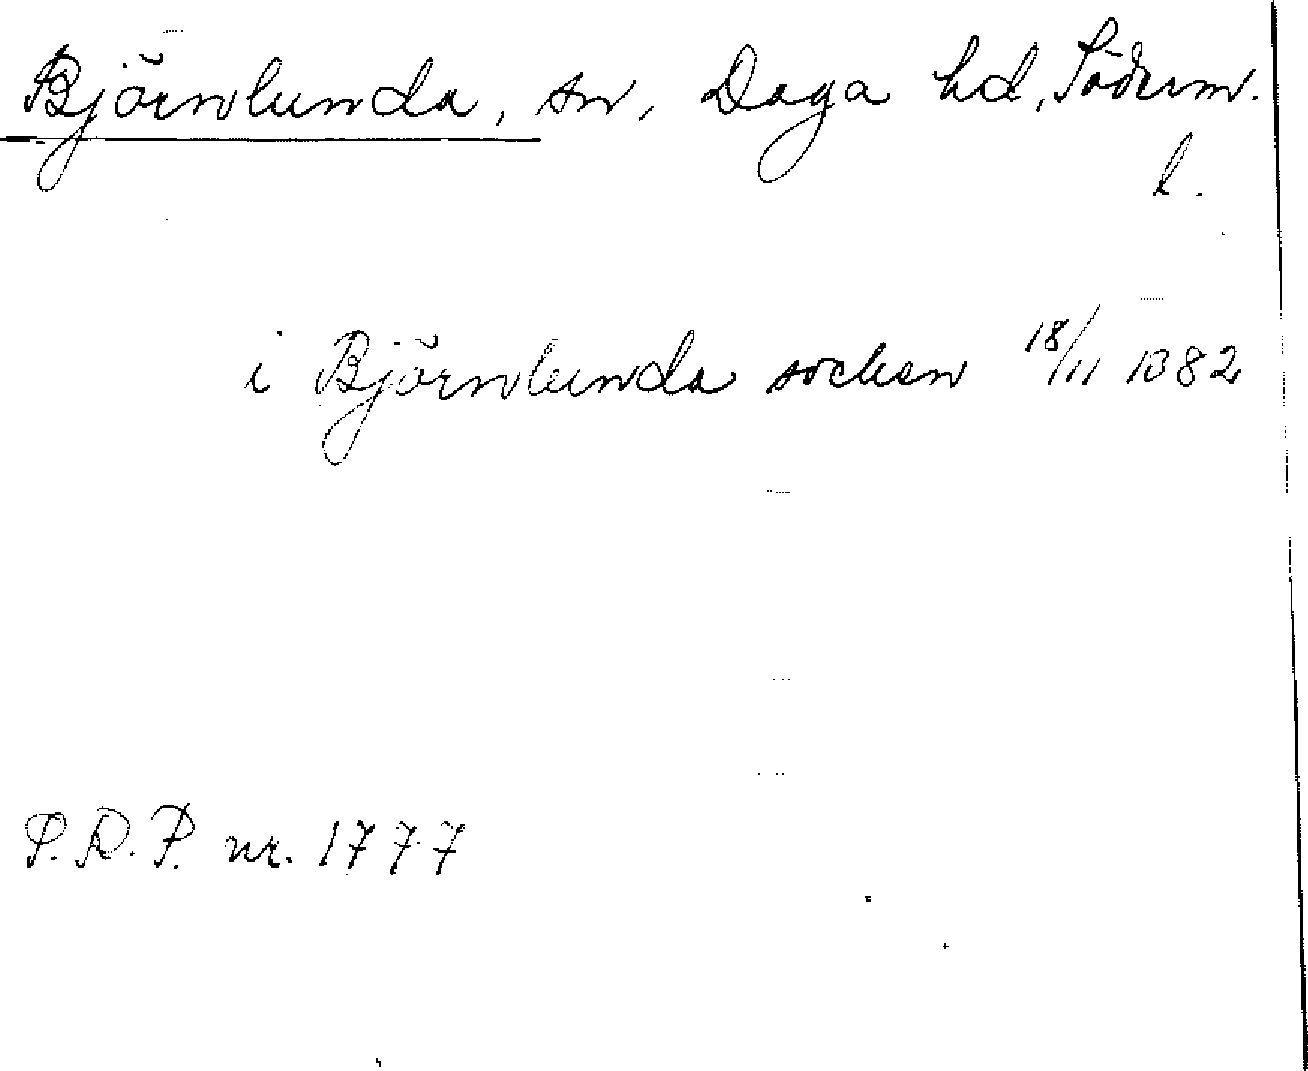 Björnlunda, sn, Daga hd, Söderm.
l.
i Björnlunda socken 18/11 1382
S.R.P. nr. 1777